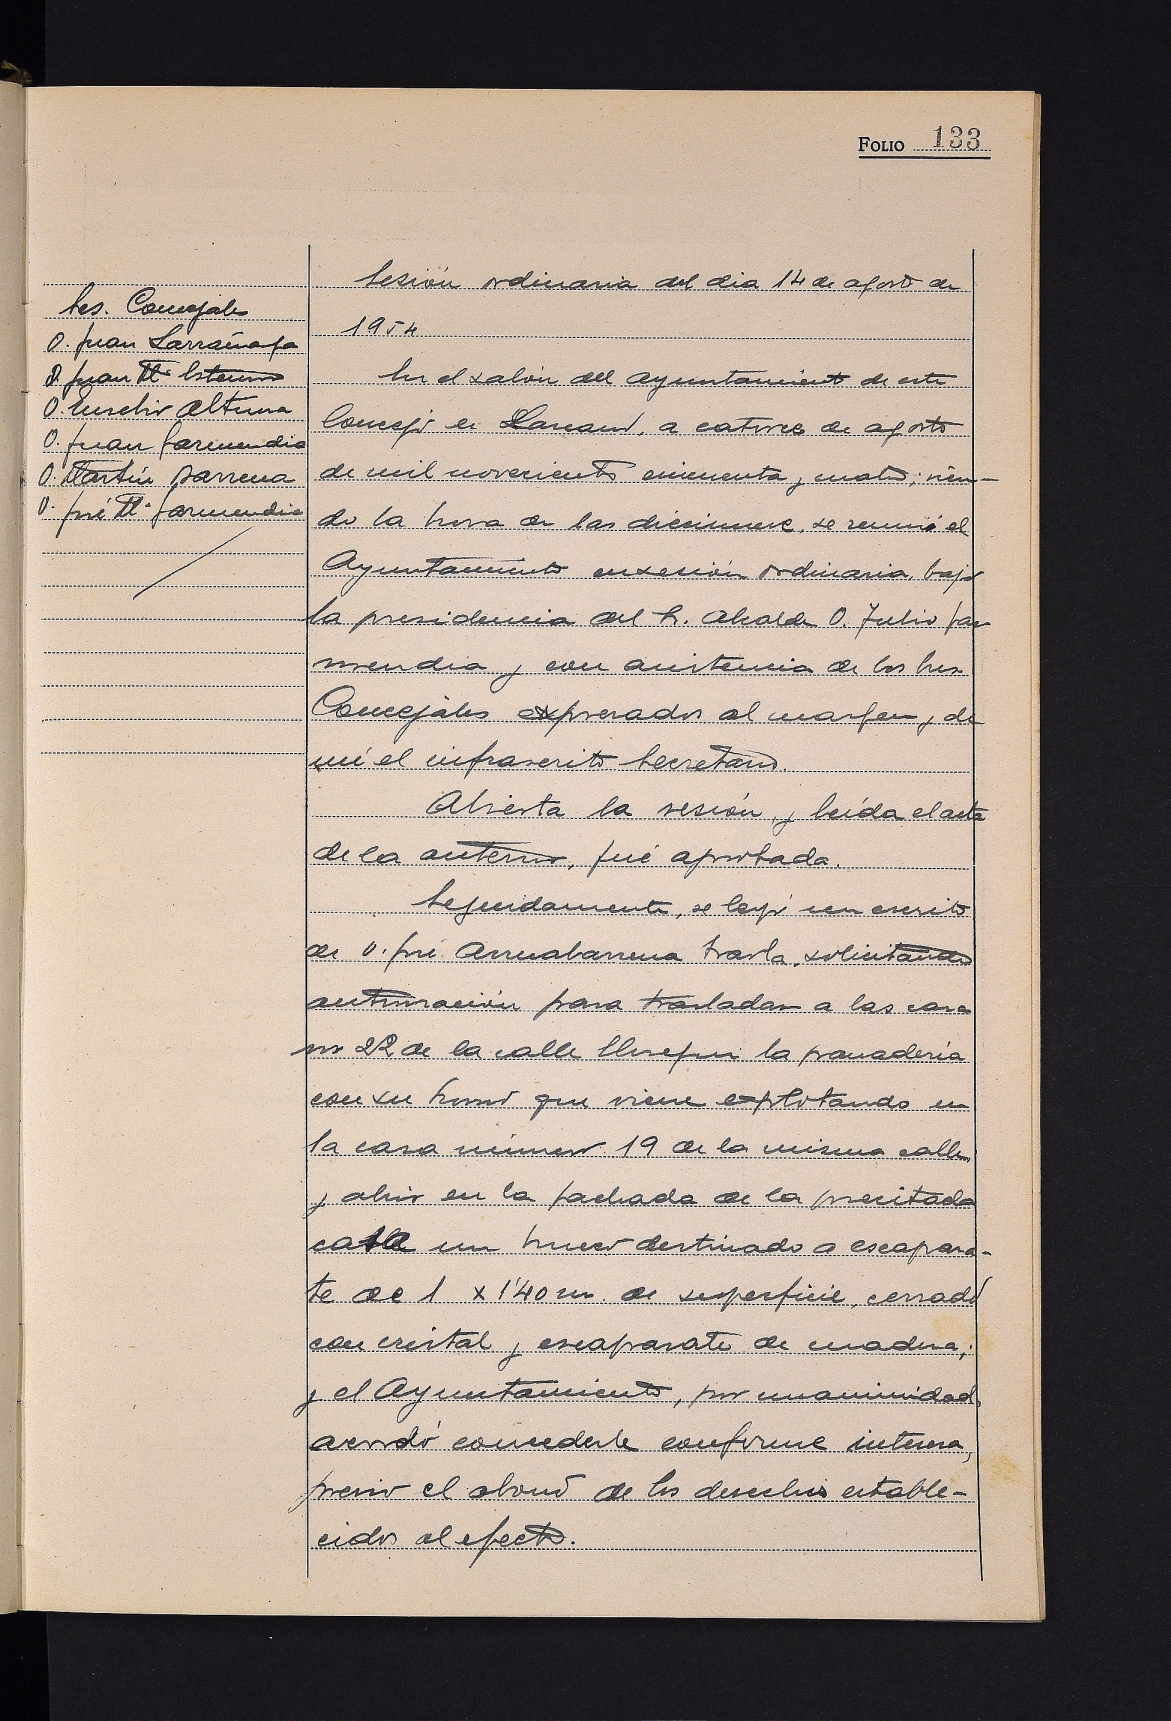 FOLIO 133
Sesión ordinaria del dia 14 de agosto de
1954
Sres. Concejales
D. Juan Larrañaga
D. Juan Mª
D. Eusebio Altuna
D. Juan Garmendia
D. Martín Barrena
D. José Mª Garmendia
En el salón del Ayuntamiento de este
Concejo de, a catorce de agosto
de mil novecientos cincuenta y cuatro; sien-
do la hora de las diecinueve, se reunió el
Ayuntamiento en sesión ordinaria, bajo
la presidencia del Sr. Alcalde D. Julio Gar
mendia y con asistencia de los Sres.
Concejales expresados al margen y de
mí el infrascrito Secretario.
Abierta la sesión, y leída el acta
de la anterior, fué aprobada.
Seguidamente, se leyó un escrito
de D. José Arruabarrena, solicitando
autorización para trasladar a las casa
nº 22 de la calle la panadería
con su horno que viene explotando en
la casa número 19 de la misma calle,
y abrir en la fachada de la precitada
casa un hueco destinado a escapara-
te de 1 x 1'40 m. de superficie, cerrado
con cristal y escaparate de madera;
y el Ayuntamiento, por unanimidad,
acordó concederle conforme interesa,
previo el abono de los derechos estable-
cidos al efecto.